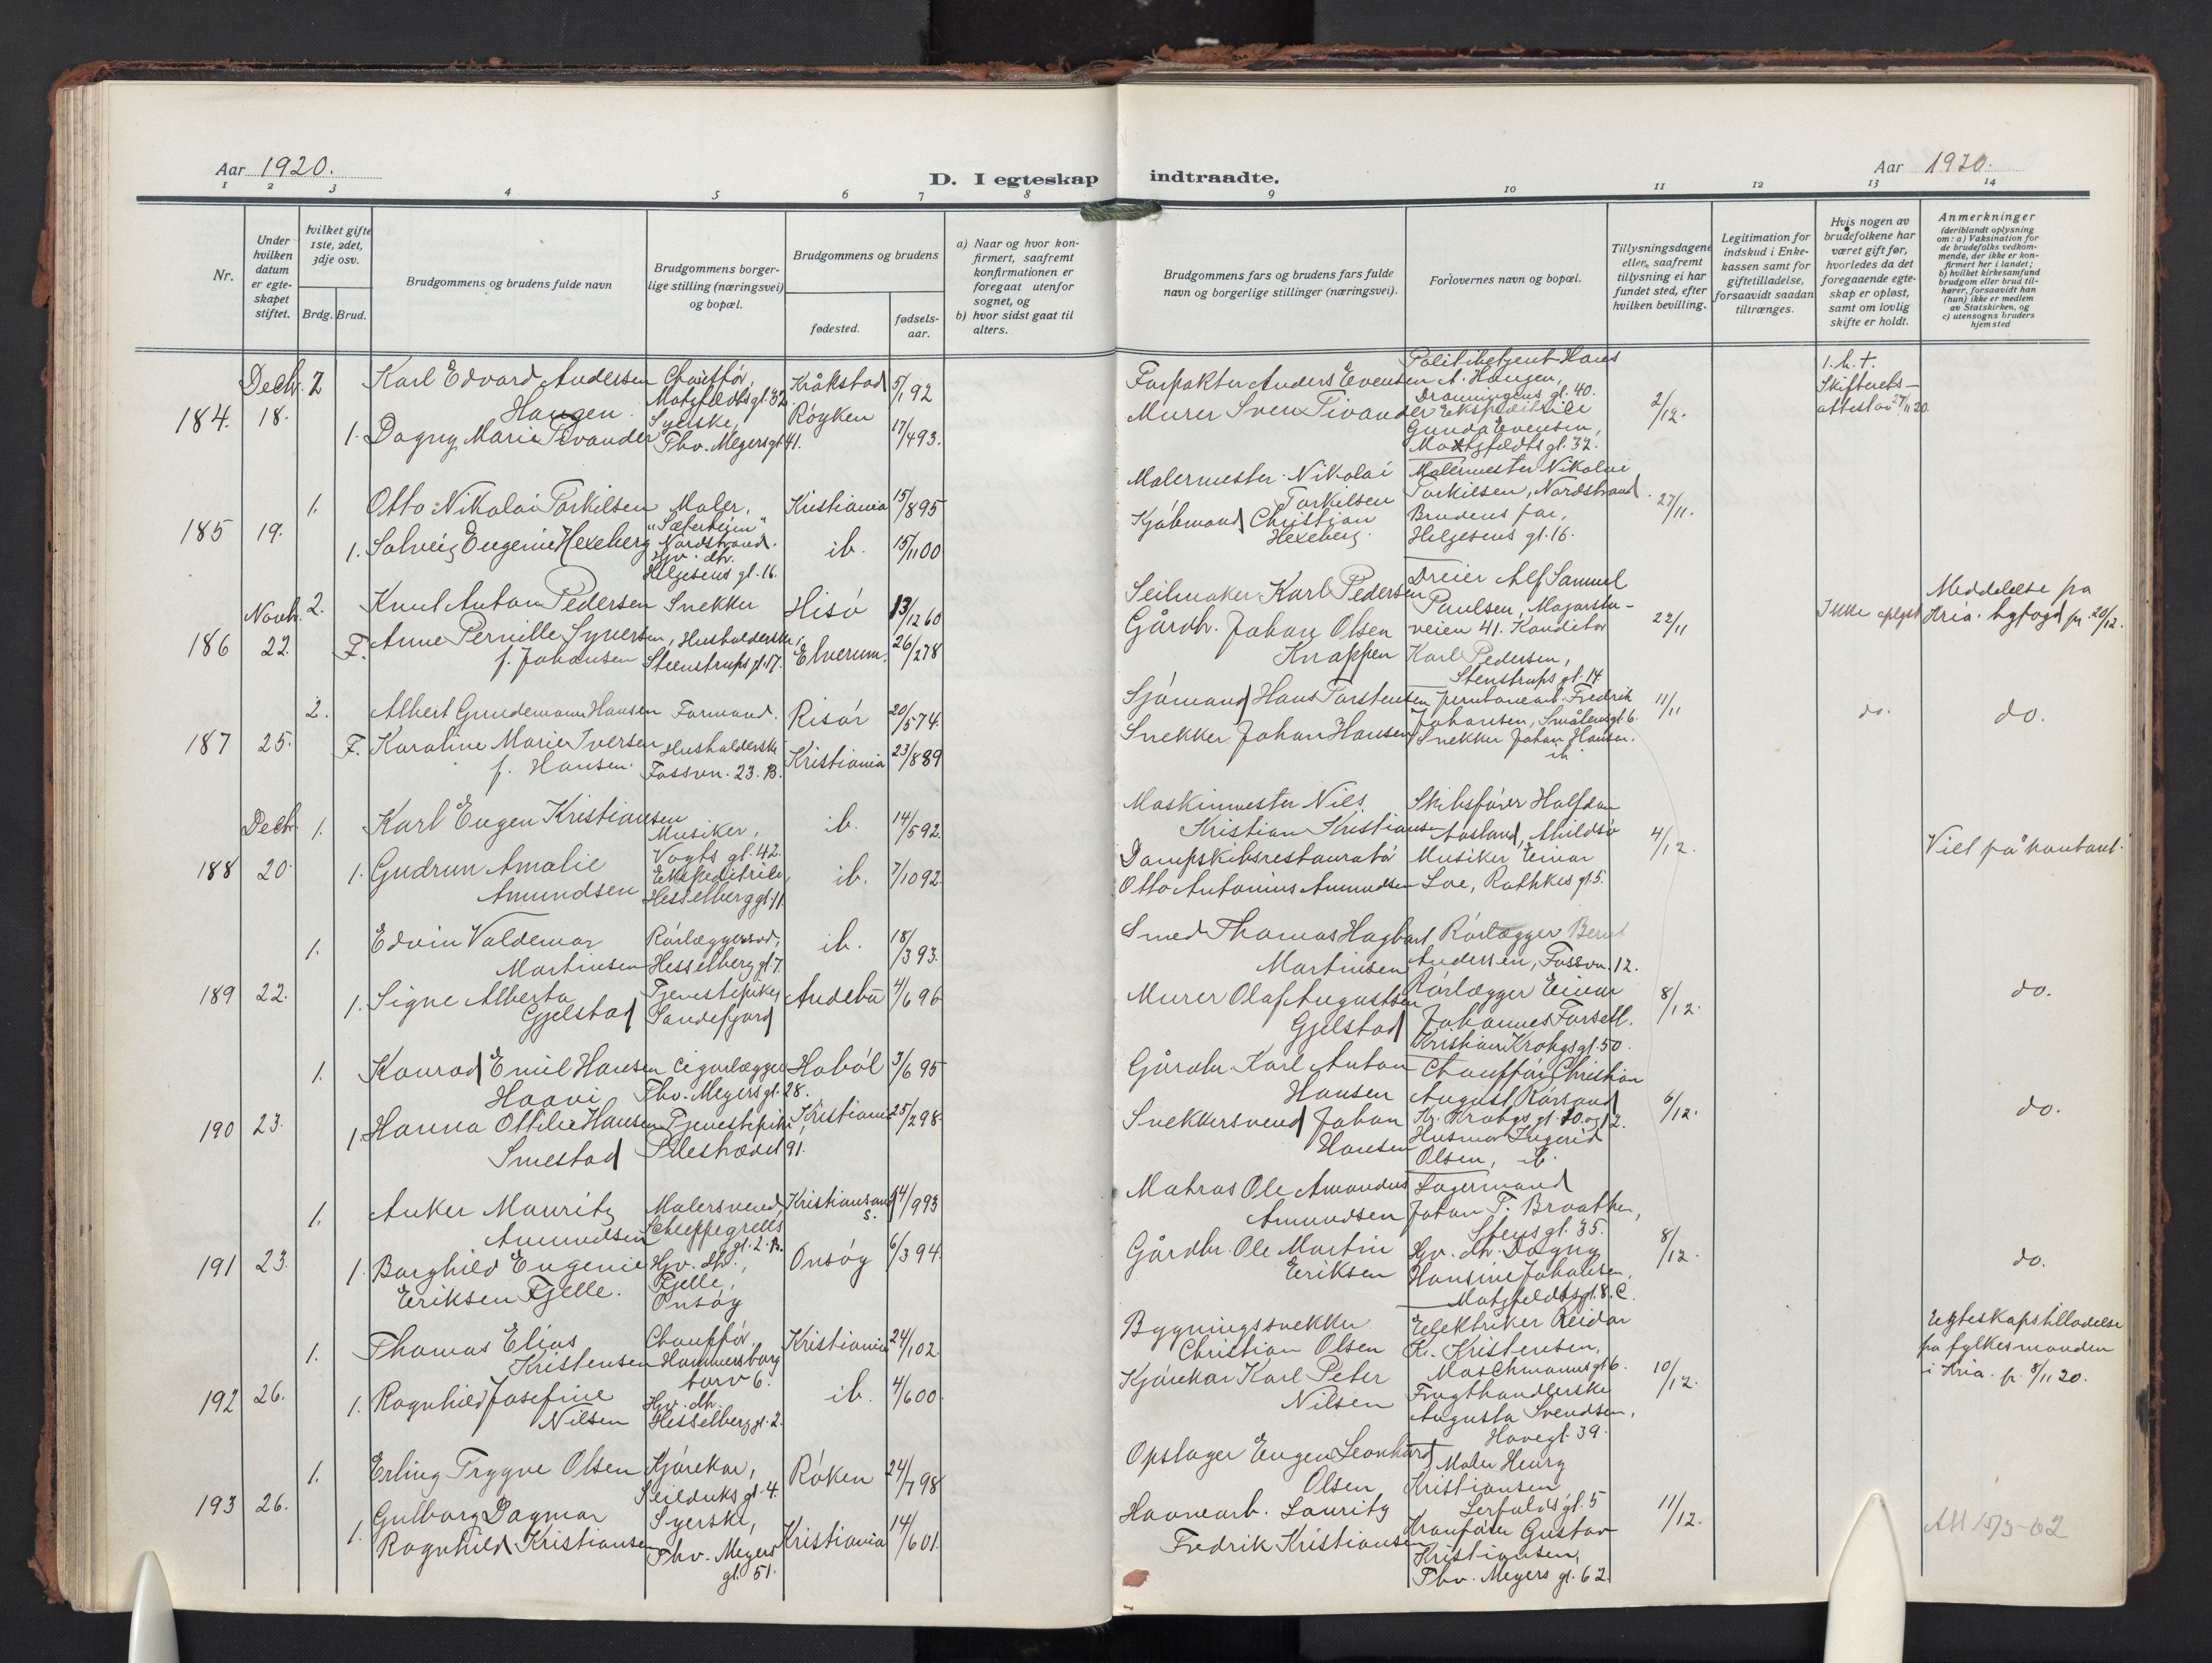 Aar 1920.
D. I egteskap indtraadte.
Aar 1920.
1 2 3 4 5 6 7 8 9 10 11 12 13 14
Nr.
Under hvilken datum er egteskapet stiftet.
hvilket gifte 1ste, 2det, 3dje osv.
Brdg. Brud.
Brudgommens og brudens fulde navn
Brudgommens borgerlige stilling (næringsvei) og bopæl.
Brudgommens og brudens
fødested.
fødselsaar.
a) Naar og hvor konfirmert, saafremt konfirmationen er foregaat utenfor sognet, og
b) hvor sidst gaat til alters.
Brudgommens fars og brudens fars fulde navn og borgerlige stillinger (næringsvei).
Forlovernes navn og bopæl.
Tillysningsdagene eller, saafremt tillysning ei har fundet sted, efter hvilken bevilling.
Legitimation for indskud i Enkekassen samt for giftetilladelse, forsaavidt saadan tiltrænges.
Hvis nogen av brudefolkene har været gift før, hvorledes da det foregaaende egteskap er opløst, samt om lovlig skifte er holdt.
Anmerkninger
(deriblandt oplysning om: a) Vaksination for de brudefolks vedkommende, der ikke er konfirmert her i landet;
b) hvilket kirkesamfund brudgom eller brud tilhører, forsaavidt han (hun) ikke er medlem av Statskirken, og
c) utensogns bruders hjemsted
184. Decbr. 18. 2 Karl Edvard Andersen Haugen. Chauffør, Motzfeldts gt. 32. Kråkstad 5/1 92
1. Dagny Marie Tivander Syerske, Thv. Meyers gt. 41. Røyken 17/4 93.
Forpakter Anders Evensen
Murer Sven Tivander
Politibetjent Hans A. Haugen, Dronningens gt. 40.
Ekspeditrice Gunda Evensen, Motzfeldts gt. 32.
2/12.
1. h. t. Skifterets-attest av 27/11 20
185 19. 1. Otto Nikolai Torkilsen Maler, "Sæterheim" Nordstrand. Kristiania 15/8 95
1. Solveig Eugenie Hexeberg Hjv. dtr. Helgesens gt. 16. ib. 15/11 00
Malermester Nikolai Torkilsen
Kjøbmand Christian Hexeberg
Malermester Nikolai Torkilsen, Nordstrand.
Brudens far, Helgesens gt. 16.
27/11.
186 Novbr. 22. 2. Knut Anton Pedersen Snekker Hisø 13/12 60
F. Anne Pernille Syversen, f. Johansen Husholderske, Steenstrups gt. 17. Elverum. 26/2 78
Seilmaker Karl Pedersen
Gårdbr. Johan Olsen Knappen
Dreier Alf Samuel Paulsen, Maparstuveien 41. Konditor Karl Pedersen, Stenstrups gt. 14
22/11
Ikke oplyst
Meddelelse fra Kria. byfogd pr. 20/12.
187 25. 2. Albert Gundemann Hansen Formand. Risør 20/5 74.
F. Karoline Marie Iversen f. Hansen. Husholderske Fossvn. 23. B. Kristiania 23/8 89
Sjømand Hans Torstensen
Snekker Johan Hansen
Jernbanearb. Fredrik Johansen, Smålensgt. 6.
Snekker Johan Hansen. ib
11/11
do.
do.
188 Decbr. 20. 1. Karl Eugen Kristiansen Musiker, Vogts gt. 42. ib. 14/5 92.
1. Gudrun Amalie Amundsen Ekspeditrice, Hesselberg gt. 11 ib. 7/10 92.
Maskinmester Nils Kristian Kristiansen
Dampskibsrestauratør Otto Antonius Amundsen
Skibsfører Halfdan Aasland, Abildsø
Musiker Einar Loe, Rathkes gt. 5.
4/12.
Viet på kontoret.
189 22. 1. Edvin Valdemar Martinsen Rørlæggersvd, Hesselberg gt. 7. ib. 18/3 93.
1. Signe Alberta Gjelstad Tjenestepike, Sandefjord Andebu 4/6 96
Smed Thomas Hagbart Martinsen
Murer Olaf Augustsen Gjelstad
Rørlægger Bernt Andersen, Fossvn. 12.
Rørlægger Einar Johannes Forsell. Kristian Krohgs gt. 50.
8/12.
do.
190 23. 1. Konrad Emil Hansen Haavi Cigarlægger Thv. Meyers gt. 28. Hobøl 3/6 95
1. Hanna Ottilie Hansen Smestad Tjenestepike, Pilestrædet 91. Kristiania 25/2 98.
Gårdbr. Karl Anton Hansen
Snekkersvend Johan Hansen
Chauffør Christian August Rørsand Kr. Krohgs gt. 10. og 12.
Husmor Ingerid Olsen, ib.
6/12.
do.
191 23. 1. Anker Mauritz Amundsen Malersvend, Schleppegrells gt. 2. B. Kristiansand S. 14/9 93
1. Borghild Eugenie Eriksen Fjelle. Hjv. dtr., Fjelle, Onsøy Onsøy 6/3 94.
Matros Ole Amandus Amundsen
Gårdbr. Ole Martin Eriksen
Lagermand Johan T. Braathen, Stens gt. 35.
Hjv. dtr. Dagny Hansine Johansen, Motzfeldts gt. 8. C.
8/12.
do.
192 26. 1. Thomas Elias Kristensen Chauffør, Hammersborg torv 6. Kristiania 24/1 02.
1. Ragnhild Josefine Nilsen Hjv. dtr. Hesselberg gt. 2. ib. 4/6 00.
Bygningssnekker Christian Olsen
Kjørekar Karl Peter Nilsen
Eelektriker Reidar Kr. Kristensen, Maschmanns gt. 6.
Frugthandlerske Augusta Svendsen, Havegt. 39.
10/12.
Egteskapstilladelse fra fylkesmanden i Kria. pr. 8/11 20.
193 26. 1. Erling Trygve Olsen Kjørekar, Seilduks gt. 4. Røken 24/7 98
1. Gulborg Dagmar Ragnhild Kristiansen Syerske, Thv. Meyers gt. 51. Kristiania 14/6 01.
Opslager Eugen Leonhard Olsen
Havnearb. Lauritz Fredrik Kristiansen
Maler Henry Kristiansen Lerfalds gt. 5
Kranfører Gustav Kristiansen, Thv. Meyers gt. 62.
11/12.
Att 15/3-62